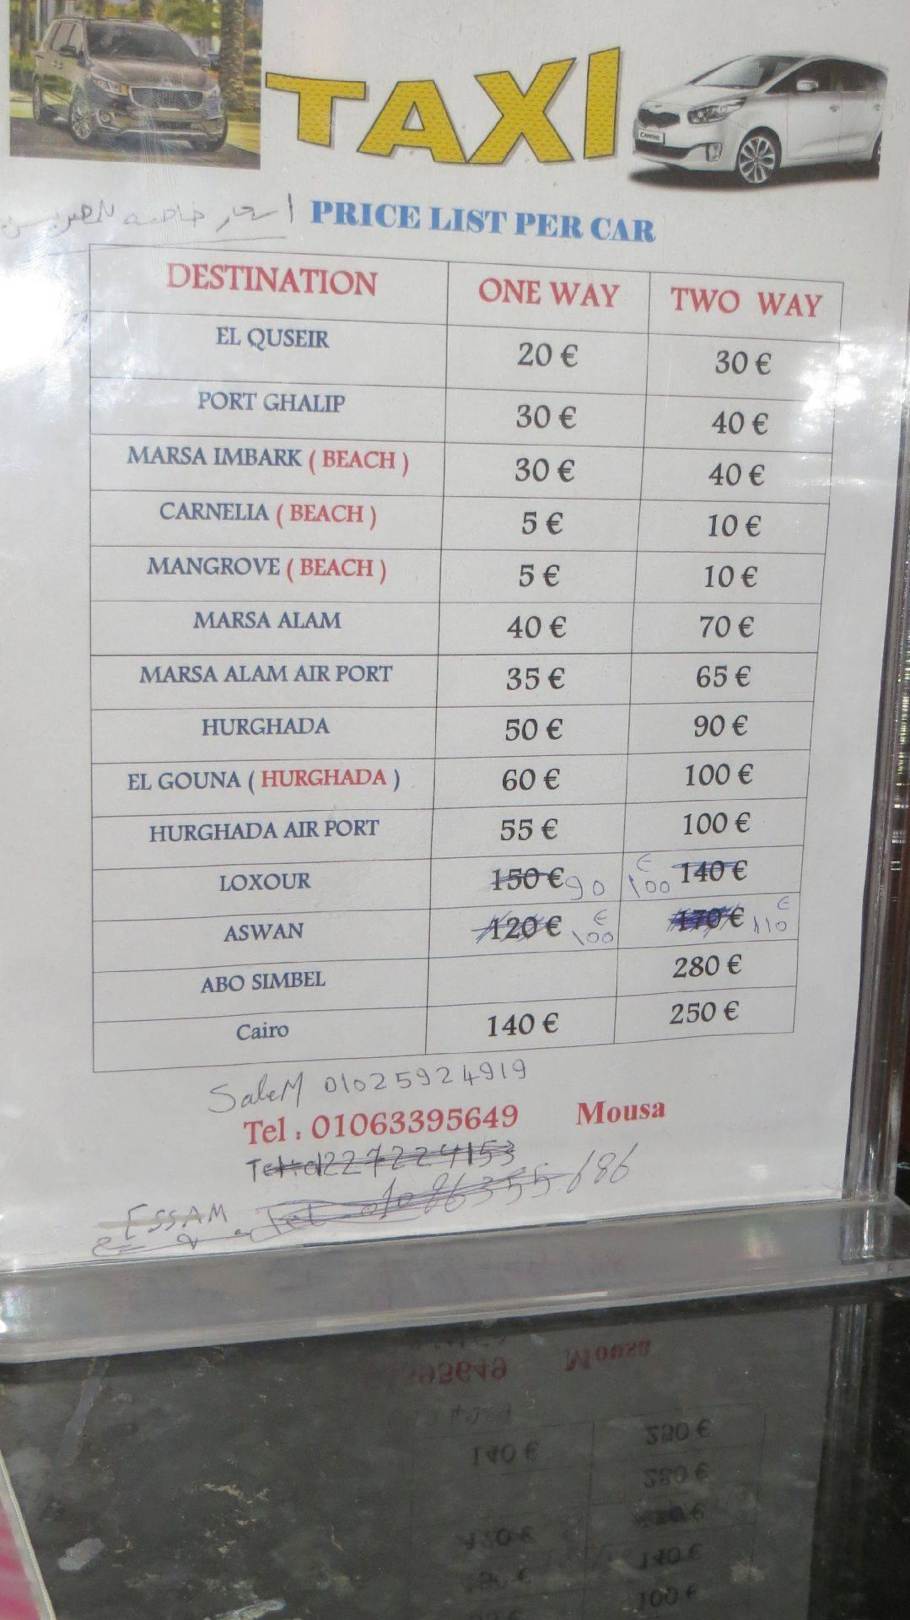 TAXI
اسعار خاصه للمصريين PRICE LIST PER CAR
DESTINATION ONE WAY TWO WAY
EL QUSEIR 20 € 30 €
PORT GHALIP 30 € 40 €
MARSA IMBARK ( BEACH ) 30 € 40 €
CARNELIA ( BEACH ) 5 € 10 €
MANGROVE ( BEACH ) 5 € 10 €
MARSA ALAM 40 € 70 €
MARSA ALAM AIR PORT 35 € 65 €
HURGHADA 50 € 90 €
EL GOUNA ( HURGHADA ) 60 € 100 €
HURGHADA AIR PORT 55 € 100 €
LOXOUR 150 € 90 100 € 140 €
ASWAN 120 € 100 € 170 € 110 €
ABO SIMBEL 280 €
Cairo 140 € 250 €
SaleM 01025924919
Tel : 01063395649 Mousa
ESSAM